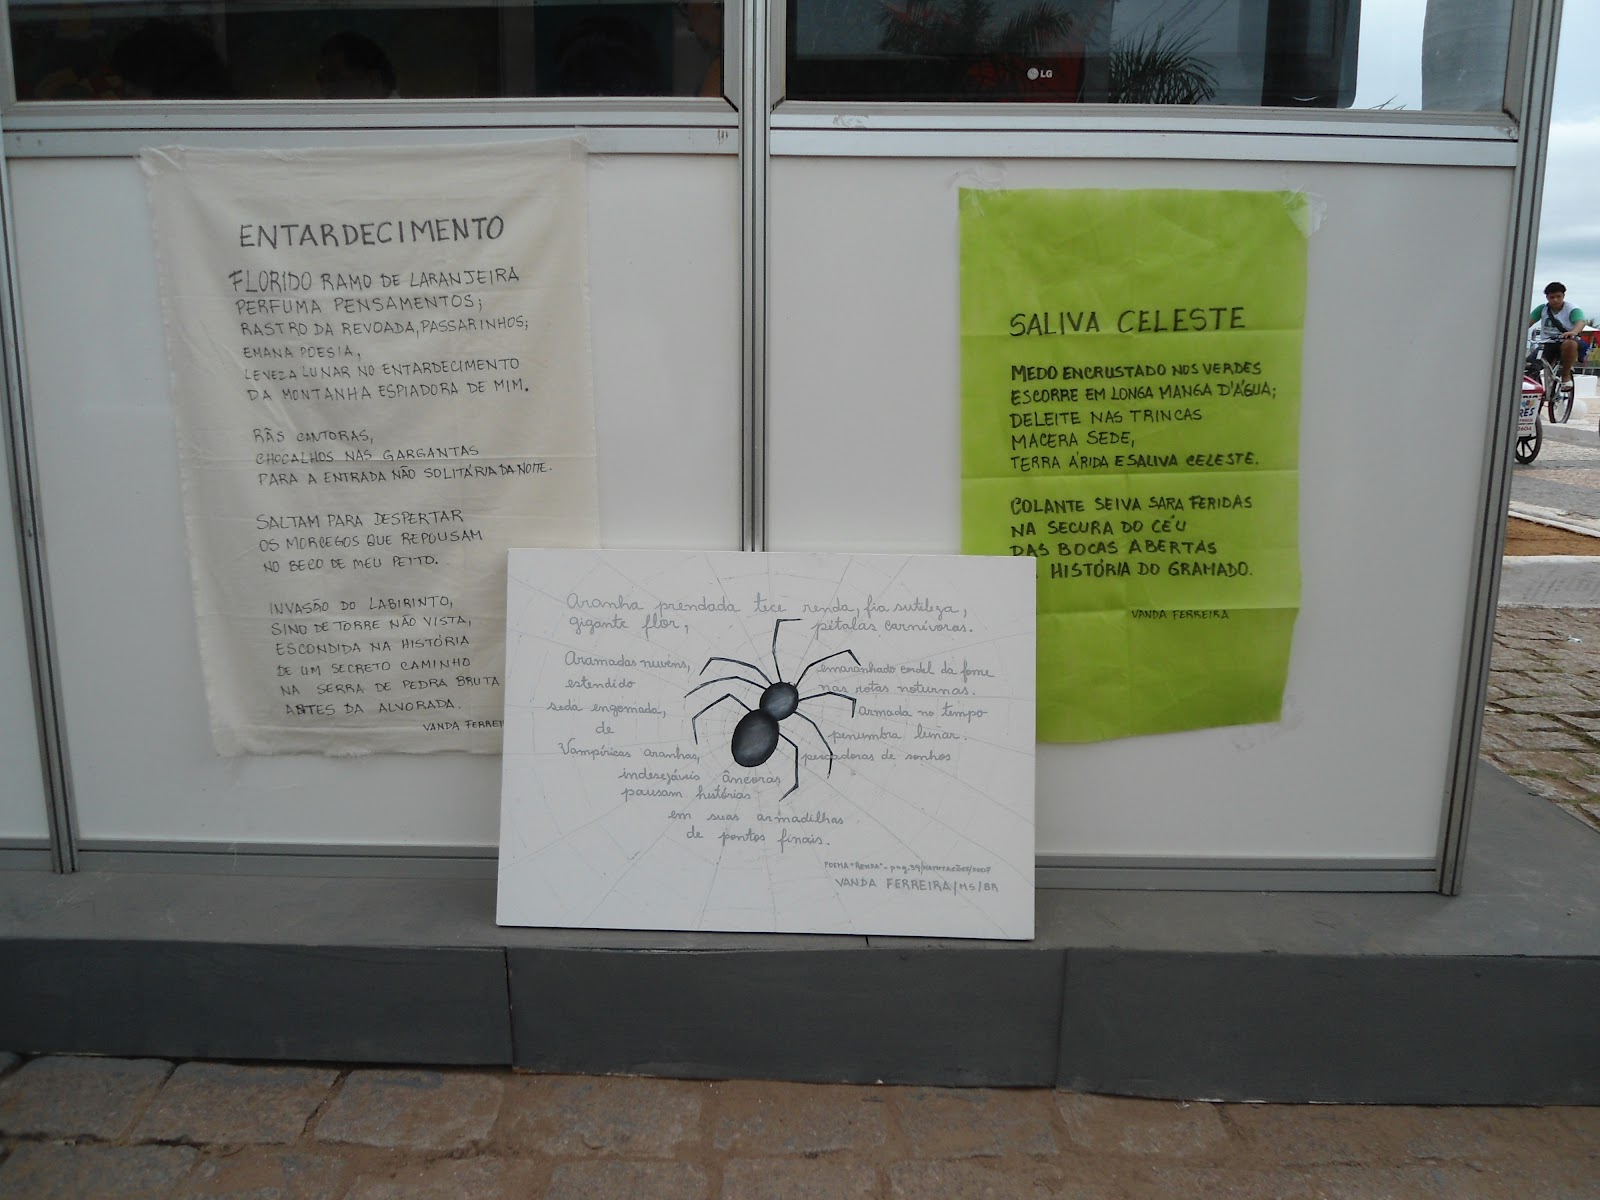 LG
ENTARDECIMENTO
FLORIDO RAMO DE LARANJEIRA
PERFUMA PENSAMENTOS;
RASTRO DA REVOADA, PASSARINHOS;
EMANA POESIA,
LEVEZA LUNAR NO ENTARDECIMENTO
DA MONTANHA ESPIADORA DE MIM.
RÃS CANTORAS,
CHOCALHOS NAS GARGANTAS
PARA A ENTRADA NÃO SOLITÁRIA DA NOITE.
SALTAM PARA DESPERTAR
OS MORCEGOS QUE REPOUSAM
NO BECO DE MEU PEITO.
INVASÃO DO LABIRINTO,
SINO DE TORRE NÃO VISTA,
ESCONDIDA NA HISTÓRIA
DE UM SECRETO CAMINHO
NA SERRA DE PEDRA BRUTA
ANTES DA ALVORADA.
VANDA FERREI
SALIVA CELESTE
MEDO ENCRUSTADO NOS VERDES
ESCORRE EM LONGA MANGA D'ÁGUA;
DELEITE NAS TRINCAS
MACERA SEDE,
TERRA ÁRIDA E SALIVA CELESTE.
COLANTE SEIVA SARA FERIDAS
NA SECURA DO CÉU
DAS BOCAS ABERTAS
HISTÓRIA DO GRAMADO.
VANDA FERREIRA
Aranha prendada tece renda, fia sutileza,
gigante flor, pétalas carnívoras.
Aramadas nuvens, emaranhado cordel da fome
estendido nas rotas noturnas.
seda engomada, armada no tempo
de penumbra lunar.
Vampíricas aranhas, pescadoras de sonhos
indesejáveis âncoras
pausam histórias
em suas armadilhas
de pontos finais.
POEMA "RENDA" - pag. 39/
VANDA FERREIRA/MS/BR